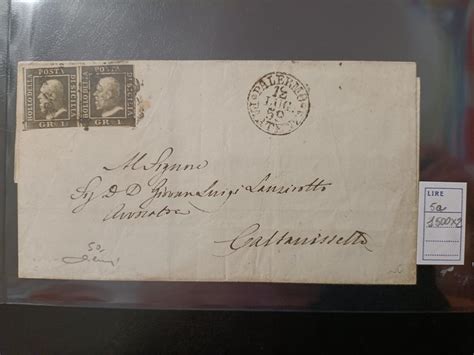 POSTA
BOLLO DELLA
SICILIA
GR. 1
POSTA
BOLLO DELLA
SICILIA
GR. 1
PALERMO
12
LUG.
59
Al Signore
Sig. D. D. Giovan Luigi Lanzirotti
Caltanissetta
5a
LIRE
5a
1500x2